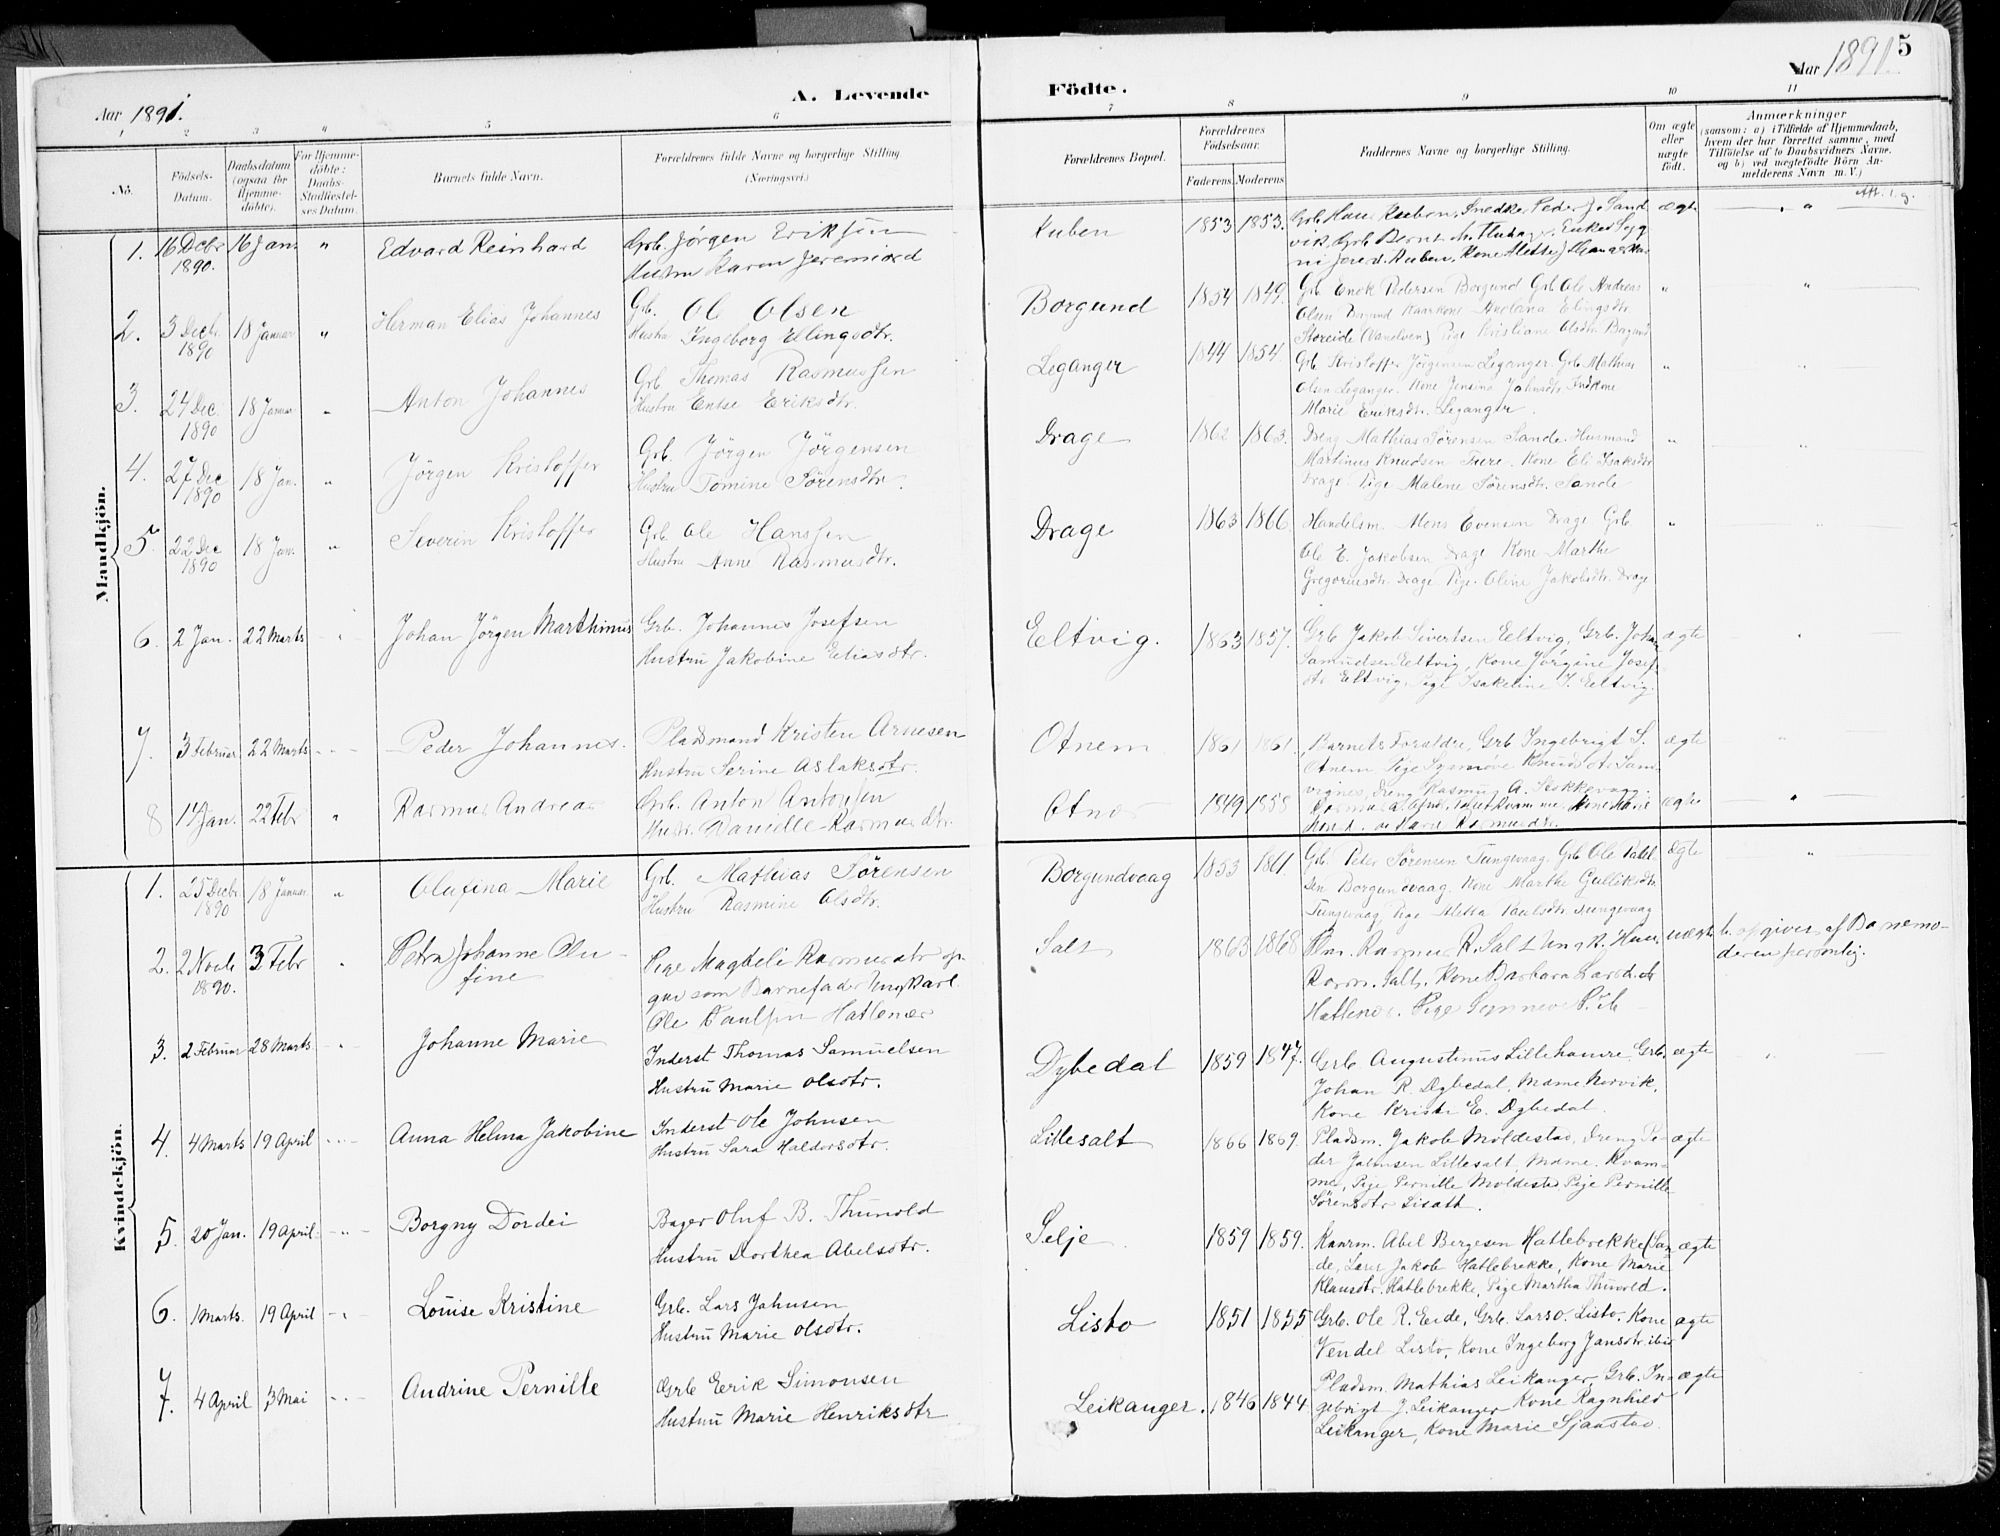 Aar 1891.
A. Levende
Födte.
Aar 1891 5
1 2 3 4 5 6 7 8 9 10 11
No.
Födsels-
Datum.
Daabsdatum
(ogsaa for
Hjemme-
döbte).
For Hjemme-
döbte:
Daabs-
Stadfæstel-
ses Datum.
Barnets fulde Navn.
Forældrenes fulde Navne og borgerlige Stilling.
(Næringsvei.)
Forældrenes Bopæl.
Forældrenes
Födselsaar.
Faderens. Moderens.
Faddernes Navne og borgerlige Stilling.
Om ægte
eller
uægte
födt.
Anmærkninger
(saasom: a) i Tilfælde af Hjemmedaab,
hvem der har forrettet samme, med
Tilföielse af to Daabsvidners Navne.
og b) ved uægtefödte Börn An-
melderens Navn m. V.)
Mandkjön.
1. 16 Decbr 1890. 16 Jan. " Edvard Reinhard
Grb. Jörgen Eriksen
Hustru Karen Jeremiasd
Kuben 1853 1853. ægte "
2. 3 Decb. 1890 18 Januar " Herman Elias Johannes
Grb. Ole Olsen
Hustru Ingeborg Ellingsdtr.
Borgund 1854 1849. Grb Enok Pedersen Borgund Grb Ole Andreas " "
Olsen Borgund Kaarkone Andrina Elingsdtr
Storeide (Vanelven) Pige Kristiane Olsdtr Borgund
3. 24 Dec. 1890 18 Januar " Anton Johannes
Grb Thomas Rasmussen
Hustru Entse Eriksdtr.
Leganger 1844 1854. Grb Kristoffer Jörgensen Leganger. Grb Mathias "
Olsen Leganger. Kone Jensine Jahnsdtr Indkone
Marie Eriksdtr. Leganger.
4. 27 Dec 1890 18 Jan. " Jörgen Kristoffer
Grb. Jörgen Jörgensen
Hustru Tomine Sörensdtr.
Drage 1862 1863. Dreng Mathias Sörensen Sande. Husmand " "
Martinus Knudsen Fure. Kone Eli Isaksdtr
Drage Pige Malene Sörensdtr. Sande
5. 22 Dec 1890 18 Jan. " Severin Kristoffer
Grb. Ole Hanssen
Hustru Anne Rasmusdtr.
Drage 1863 1866. Handelsm. Mons Evensen Drage Grb. " "
Ole E. Jakobsen Drage Kone Marthe
Gregoriusdtr. Drage Pige. Oline Jakobsdtr. Drage
6. 2 Jan. 22 Marts " Johan Jörgen Marthinus
Grb. Johannes Josefsen
Hustru Jakobine Eliasdtr.
Eeltvig. 1863 1857. Grb Jakob Sivertsen Eeltvig, Grb. Johan ægte "
Samuelsen Eeltvig, Kone Jörgine Josef-
dtr Eeltvig, Pige Isakeline J. Eeltvig.
7. 3 Februar 22 Marts " Peder Johannes.
Pladsmand Kristen Arnesen
Hustru Serine Aslaksdtr.
Otnem 1861 1861. Barnets Foraldre, Grb Ingebrigt S. ægte "
8 14 Jan. 22 Febr " Rasmus Andreas
Grb. Anton Antonsen
Hustr. Danielle Rasmusdtr.
1849 1858 ægte "
Kvindekjön.
1. 25 Decbr 1890 18 Januar " Olufina Marie
Grb. Mathias Sörensen
Hustru Rasmine Olsdtr.
Borgundvaag 1853 1861. Grb. Peter Sörensen Tungevaag. Grb Ole Pabel- Ægte "
sen Borgundvaag. Kone Marthe Gulliksdtr
Tungevaag, Pige Aletta Paulsdtr Tungevaag
2. 2 Novb 1890. 3 Febr " Petra Johanne Olu-
fine
Pige Magdeli Rasmusdtr op-
gav som Barnefader Ungkarl
Ole Paulsen Hatlenes
Salt 1863 1868 uægte b. opgiven af Barnemo-
deren personlig.
3. 2 Februar 28 Marts " Johanne Marie
Inderst Thomas Samuelsen
Hustru Marie Olsdtr.
Dybedal 1859 1847. Grb Augustinus Lillehamre, Grb. ægte "
Johan R. Dybedal, Mame Nervik,
Kone Kristi E. Dybedal.
4. 4 Marts 19 April " Anna Helma Jakobine
Inderst Ole Johnsen
Hustru Sara Haldorsdtr.
Lillesalt 1866 1869. Pladsm. Jakob Moldestad, Dreng Pe- ægte
der Jahnsen Lillesalt, Mame. Kvam-
me, Pige Pernille Moldestad Pige Pernille
Sörensdtr
5. 20 Jan. 19 April. " Borgny Dordei
Bager Oluf B. Thunold
Hustru Dorthea Abelsdtr.
Selje 1859 1859. Kaarm. Abel Bergesen Hatlebrekke (San- ægte
de, Lærer Jakob Hatlebrekke, Kone Marie
Klausdtr. Hatlebrekke, Pige Martha Thunold.
6. 1 Marts. 19 April " Louise Kristine
Grb. Lars Jahnsen
Hustru Marie Olsdtr.
Listo 1851 1855 Grb. Ole R. Eide, Grb. Lars O. Listo. Kone ægte
Vendel Listo, Kone Ingeborg Jansdtr ibid
7. 4 April 3 Mai " Andrine Pernille
Grb Eerik Simonsen
Hustru Marie Henriksdtr
Leikanger. 1846 1844 Pladsm. Mathias Leikanger, Grb. In- ægte
gebrigt J. Leikanger Kone Ragnhild
Leikanger, Kone Marie Sjaastad.